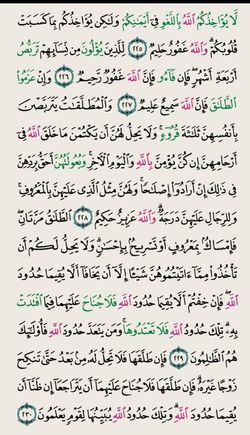 لَّا يُؤَاخِذُكُمُ اللَّهُ بِاللَّغْوِ فِي أَيْمَانِكُمْ وَلَٰكِن يُؤَاخِذُكُم بِمَا كَسَبَتْ
قُلُوبُكُمْ وَاللَّهُ غَفُورٌ حَلِيمٌ ٢٢٥ لِّلَّذِينَ يُؤْلُونَ مِن نِّسَائِهِمْ تَرَبُّصُ
أَرْبَعَةِ أَشْهُرٍ فَإِن فَاءُو فَإِنَّ اللَّهَ غَفُورٌ رَّحِيمٌ ٢٢٦ وَإِنْ عَزَمُوا
الطَّلَاقَ فَإِنَّ اللَّهَ سَمِيعٌ عَلِيمٌ ٢٢٧ وَالْمُطَلَّقَاتُ يَتَرَبَّصْنَ
بِأَنفُسِهِنَّ ثَلَاثَةَ قُرُوءٍ وَلَا يَحِلُّ لَهُنَّ أَن يَكْتُمْنَ مَا خَلَقَ اللَّهُ فِي
أَرْحَامِهِنَّ إِن كُنَّ يُؤْمِنَّ بِاللَّهِ وَالْيَوْمِ الْآخِرِ وَبُعُولَتُهُنَّ أَحَقُّ بِرَدِّهِنَّ
فِي ذَٰلِكَ إِنْ أَرَادُوا إِصْلَاحًا وَلَهُنَّ مِثْلُ الَّذِي عَلَيْهِنَّ بِالْمَعْرُوفِ
وَلِلرِّجَالِ عَلَيْهِنَّ دَرَجَةٌ وَاللَّهُ عَزِيزٌ حَكِيمٌ ٢٢٨ الطَّلَاقُ مَرَّتَانِ
فَإِمْسَاكٌ بِمَعْرُوفٍ أَوْ تَسْرِيحٌ بِإِحْسَانٍ وَلَا يَحِلُّ لَكُمْ أَن
تَأْخُذُوا مِمَّا آتَيْتُمُوهُنَّ شَيْئًا إِلَّا أَن يَخَافَا أَلَّا يُقِيمَا حُدُودَ
اللَّهِ فَإِنْ خِفْتُمْ أَلَّا يُقِيمَا حُدُودَ اللَّهِ فَلَا جُنَاحَ عَلَيْهِمَا فِيمَا افْتَدَتْ
بِهِ تِلْكَ حُدُودُ اللَّهِ فَلَا تَعْتَدُوهَا وَمَن يَتَعَدَّ حُدُودَ اللَّهِ فَأُولَٰئِكَ
هُمُ الظَّالِمُونَ ٢٢٩ فَإِن طَلَّقَهَا فَلَا تَحِلُّ لَهُ مِن بَعْدُ حَتَّىٰ تَنكِحَ
زَوْجًا غَيْرَهُ فَإِن طَلَّقَهَا فَلَا جُنَاحَ عَلَيْهِمَا أَن يَتَرَاجَعَا إِن ظَنَّا أَن
يُقِيمَا حُدُودَ اللَّهِ وَتِلْكَ حُدُودُ اللَّهِ يُبَيِّنُهَا لِقَوْمٍ يَعْلَمُونَ ٢٣٠